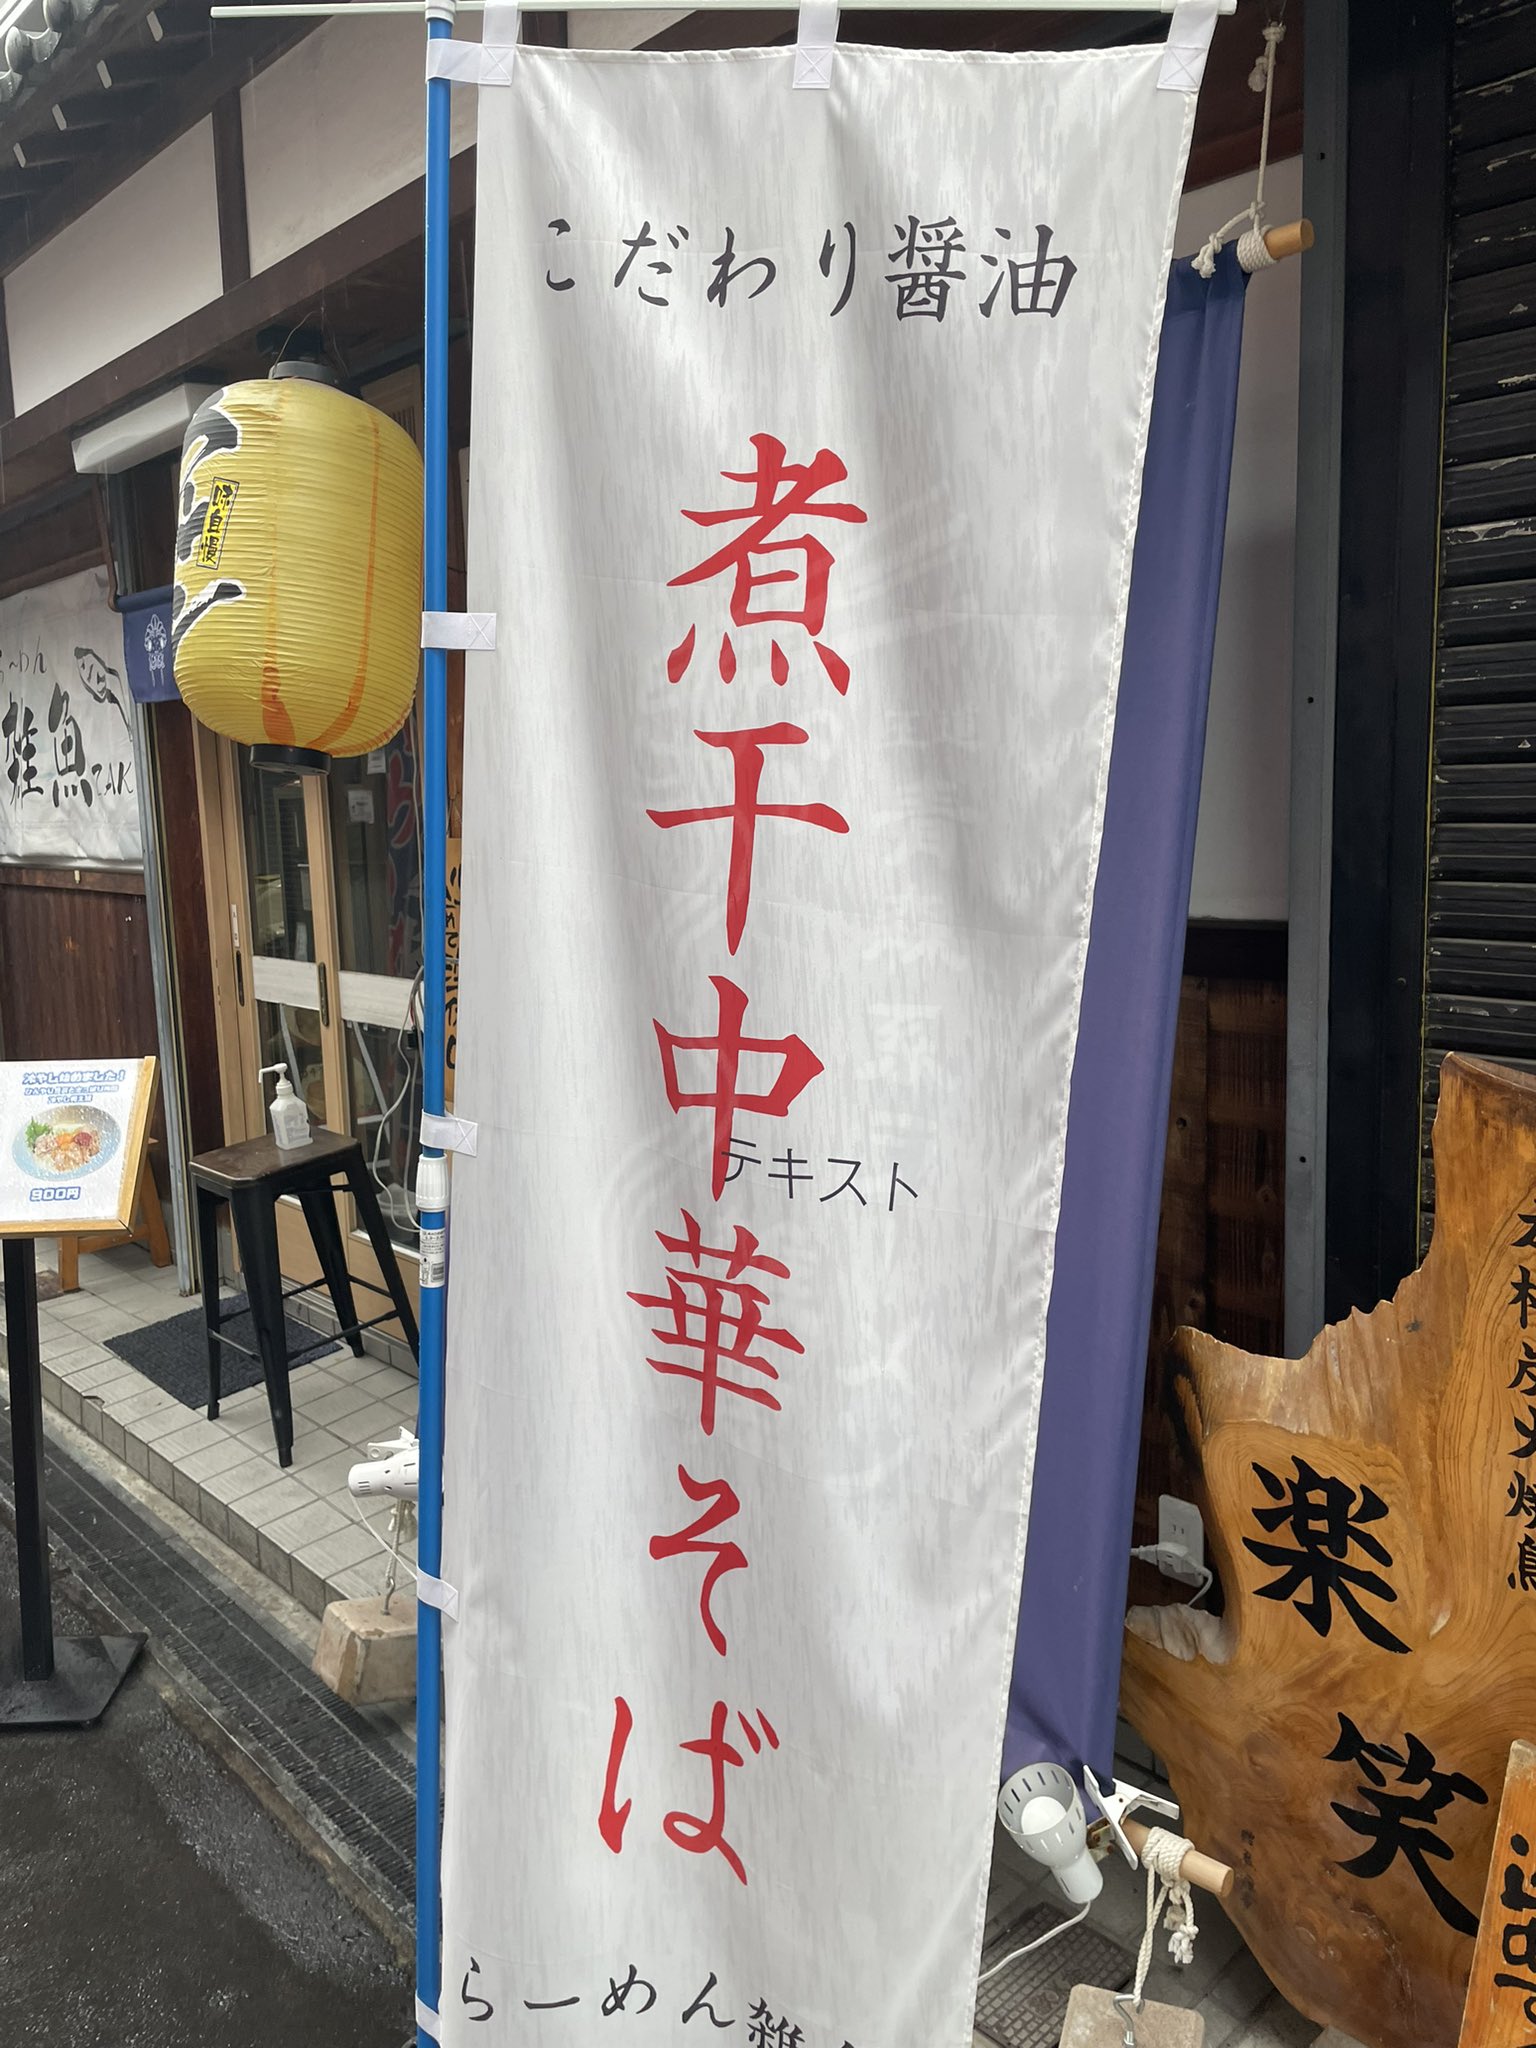 こだわり醤油
煮干中華そば
テキスト
らーめん雑
味自慢
らーめん
雑魚ZAK
冷やし始めました！
900円
楽笑